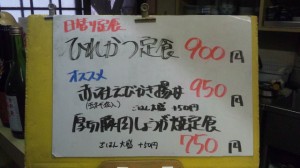 日替り定食
ひれかつ定食 900円
オススメ
赤社えびかき揚丼 950円
ごはん大盛 +50円
厚切豚肉しょうが焼定食
ごはん大盛 +50円 750円